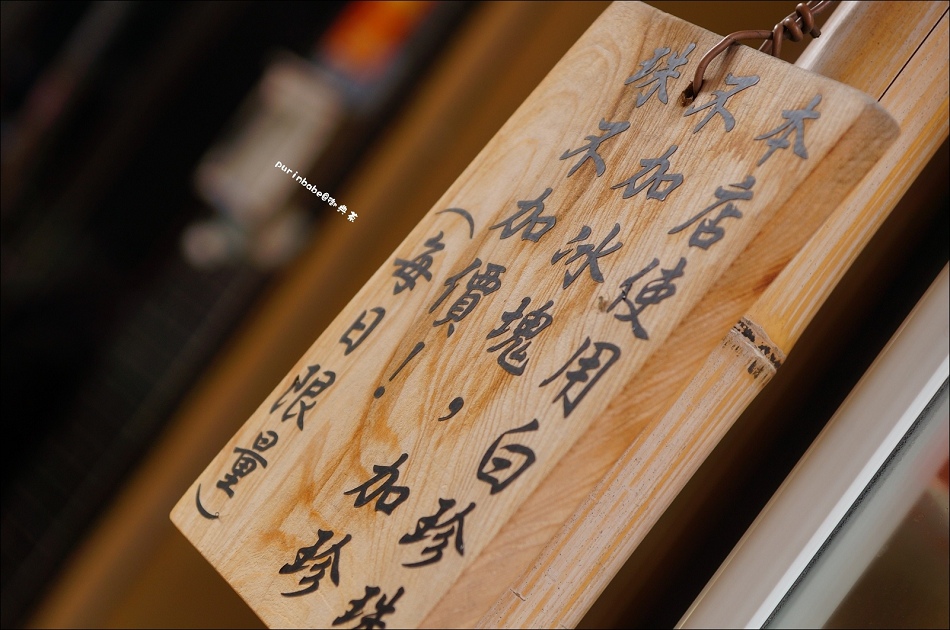 本店使用白珍珠
不加冰塊，加珍
珠不加價！
（每日限量）
purinbabe@咖典茶